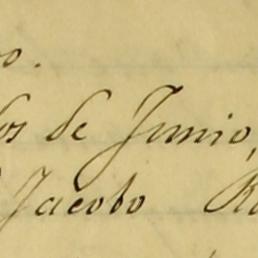 o.
os de Junio,
Jacobo R